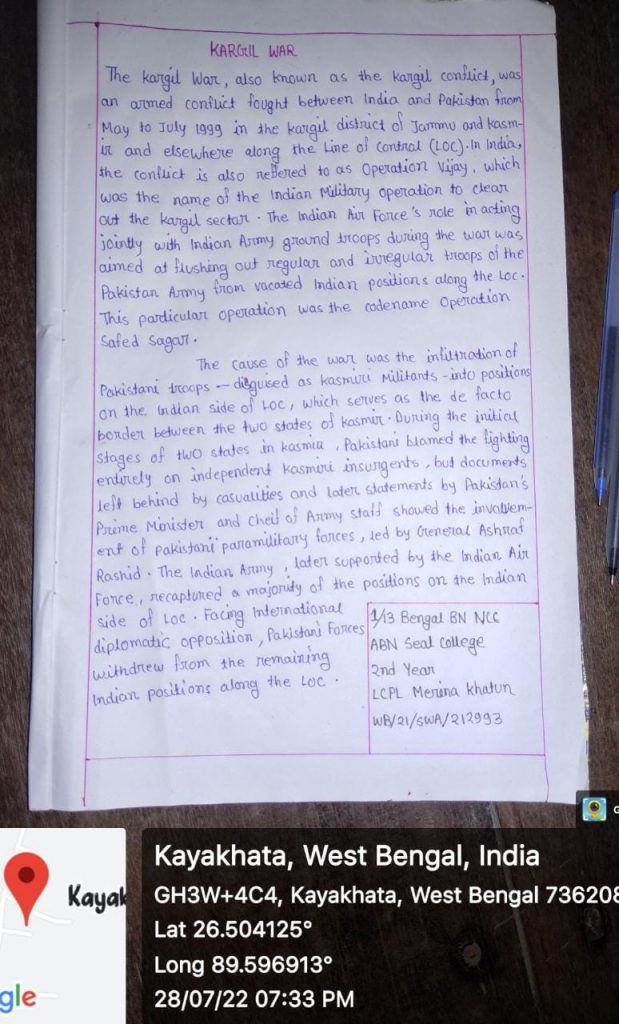 KARGIL WAR
The kargil War, also known as the kargil conflict, was
an armed conflict fought between India and Pakistan from
May to July 1999 in the kargil district of Jammu and kasm-
ir and elsewhere along the Line of control (LOC). In India,
the conflict is also reffered to as Operation Vijay, which
was the name of the Indian Military operation to clear
out the kargil sector. The Indian Air Force's role in acting
jointly with Indian Army ground troops during the war was
aimed at flushing out regular and irregular troops of the
Pakistan Army from vacated Indian positions along the LOC.
This particular operation was the codename Operation
Safed Sagar.
The cause of the war was the infiltration of
Pakistani troops - disguised as kasmiri Militants - into positions
on the Indian side of LOC, which serves as the de facto
border between the two states of kasmir. During the initial
stages of two states in kasmir, Pakistani blamed the fighting
entirely on independent kasmiri insurgents, but documents
left behind by casualities and later statements by Pakistan's
Prime Minister and cheif of Army staff showed the involvem-
ent of pakistani paramilitary forces, led by General Ashraf
Rashid. The Indian Army, later supported by the Indian Air
Force, recaptured a majority of the positions on the Indian
side of LOC. Facing International
diplomatic opposition, Pakistani Forces
withdrew from the remaining
Indian positions along the LOC.
1/13 Bengal BN NCC
ABN Seal College
2nd Year
LCPL Merina Khatun
WB/21/SWA/212993
G
Kayak
gle
Kayakhata, West Bengal, India
GH3W+4C4, Kayakhata, West Bengal 736208
Lat 26.504125°
Long 89.596913°
28/07/22 07:33 PM